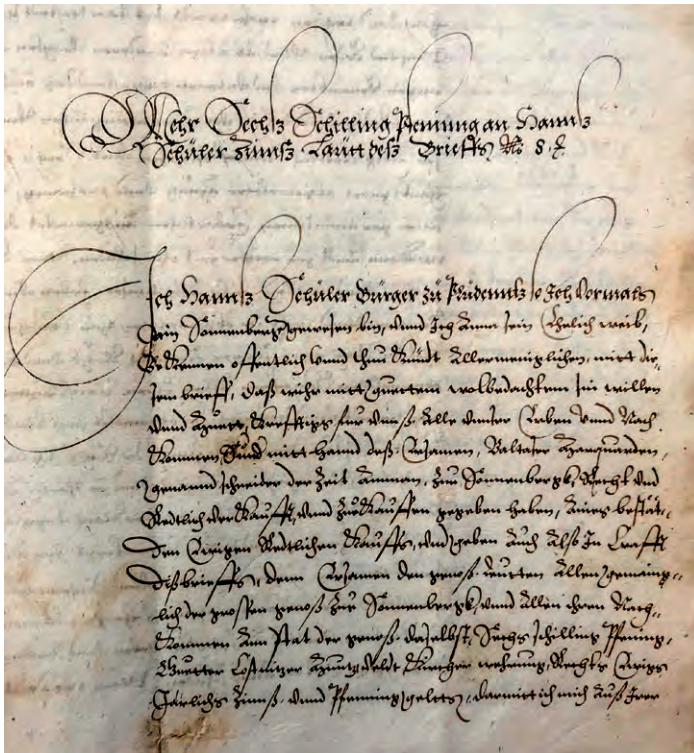 Mehr Sechß Schilling Pfening an Hannß
Schüler Zinnß Lautt deß Brieffs No 8.
Ich Hannß Schüler Burger zu Pludenntz so Ich Vormals
Sonnenberg gewesen bin, vnnd Ich Anna sein Ehelich weib,
Bekhennen offentlich vnnd thun khundt Allermeniglichen, mitt die„
sem brieff, daß wihr mitt guettem wolbedachtem sin willen
vnnd Krefftigs fur vnnß Alle vnnser Erben vnnd Nach
Kommen, mitt hannd deß Ersamen, Baltaser
genannd schneider der Zeit Amman, Zuo Sonnenbergk, Recht vnd
Redtlich verkaufft, vnnd Zuo kauffen gegeben haben, Aines bestät„
den Ewigen Redtlichen Kauffs, vnnd geben Auch Alß In Crafft
diß brieffs, denn Ersamen den genoß leutten Allen gemaing„
lich der grossen genoß Zuo Sonnenbergk, vnnd Allen ihren Nach„
kommen Ann stat der genoß daselbst, Sechs schilling Pfening,
Guetter Costnitzer Veldt Kircher wehrung, Rechts Ewigs
Järlichs Zinnß vnnd Pfening gelts, darmitt ich mich Auß Irer